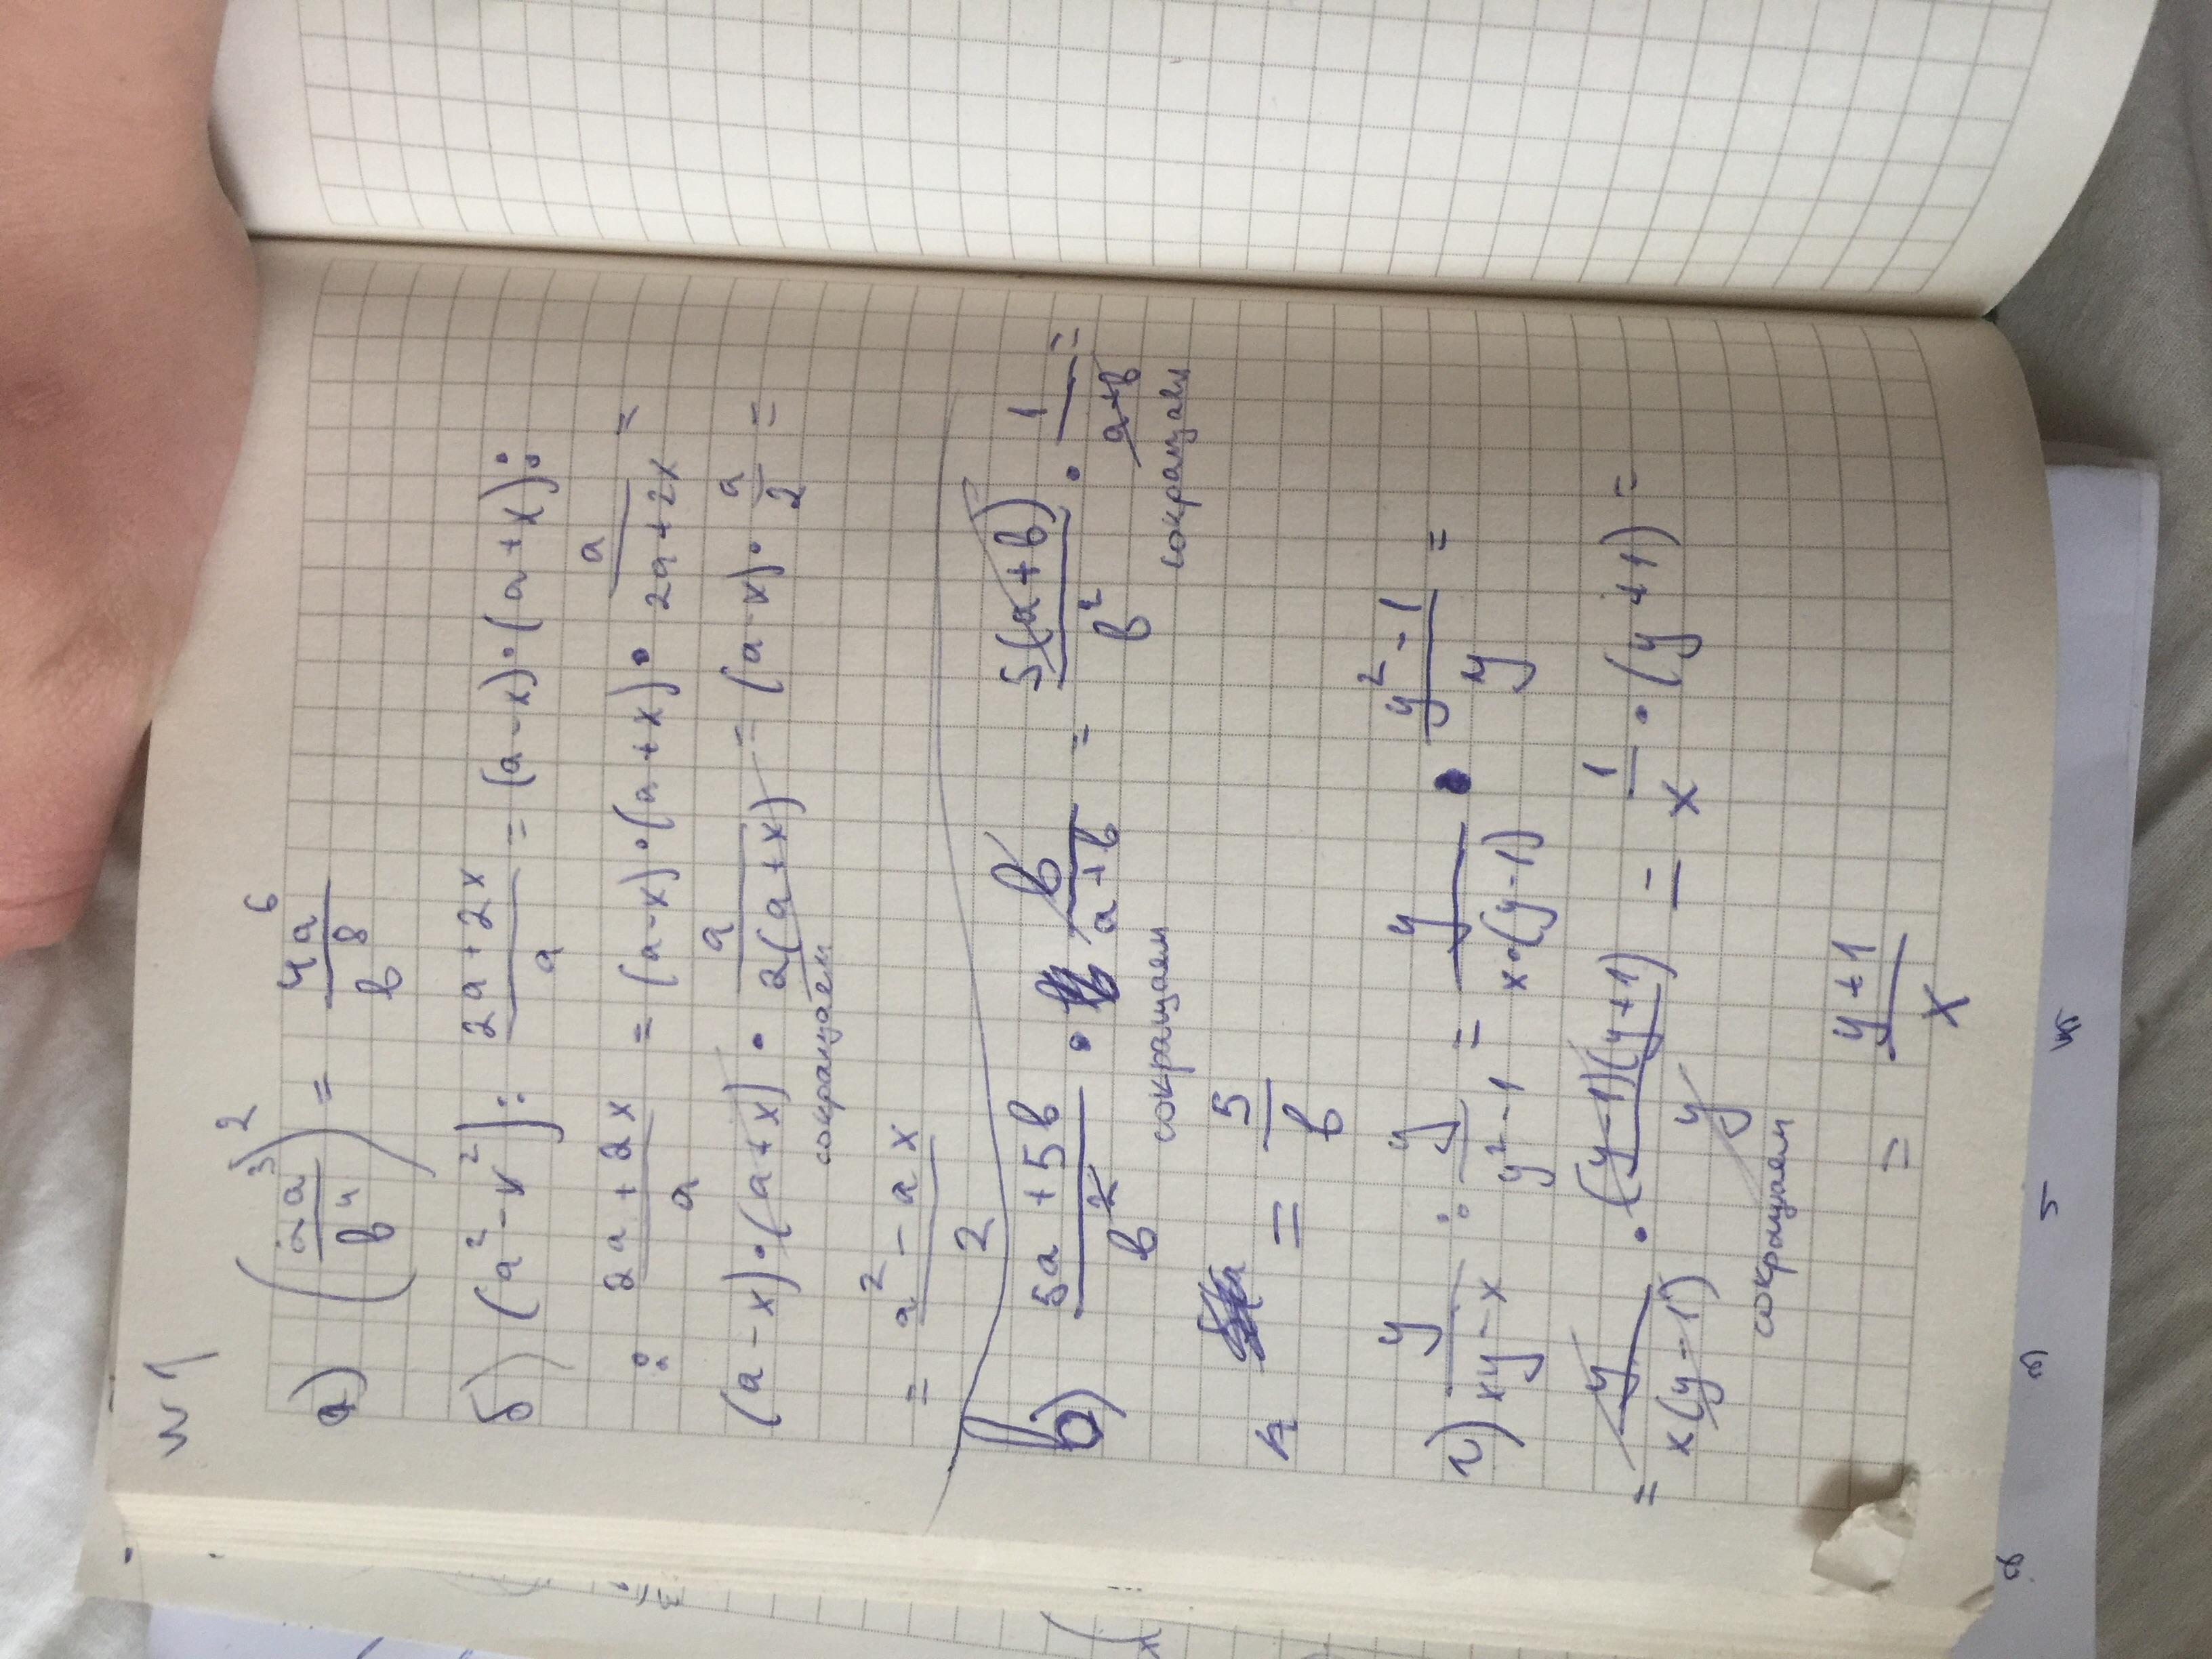 N1
а) (2a³/b⁴)² = 4a⁶/b⁸
б) (a² - x²) : (2a + 2x)/a = (a - x)·(a + x) :
: (2a + 2x)/a = (a - x)·(a + x) · a/(2a + 2x) =
(a - x)·(a + x) · a/(2(a + x)) = (a - x)· a/2 =
сокращаем
= (a² - ax)/2
в) (5a + 5b)/b² · b/(a + b) = 5(a + b)/b² · 1/(a + b) =
сокращаем сокращаем
= 5/b
г) y/(xy - x) : y/(y² - 1) = y/(x·(y - 1)) · (y² - 1)/y =
= y/(x(y - 1)) · (y - 1)(y + 1)/y = 1/x · (y + 1) =
сокращаем
= (y + 1)/x